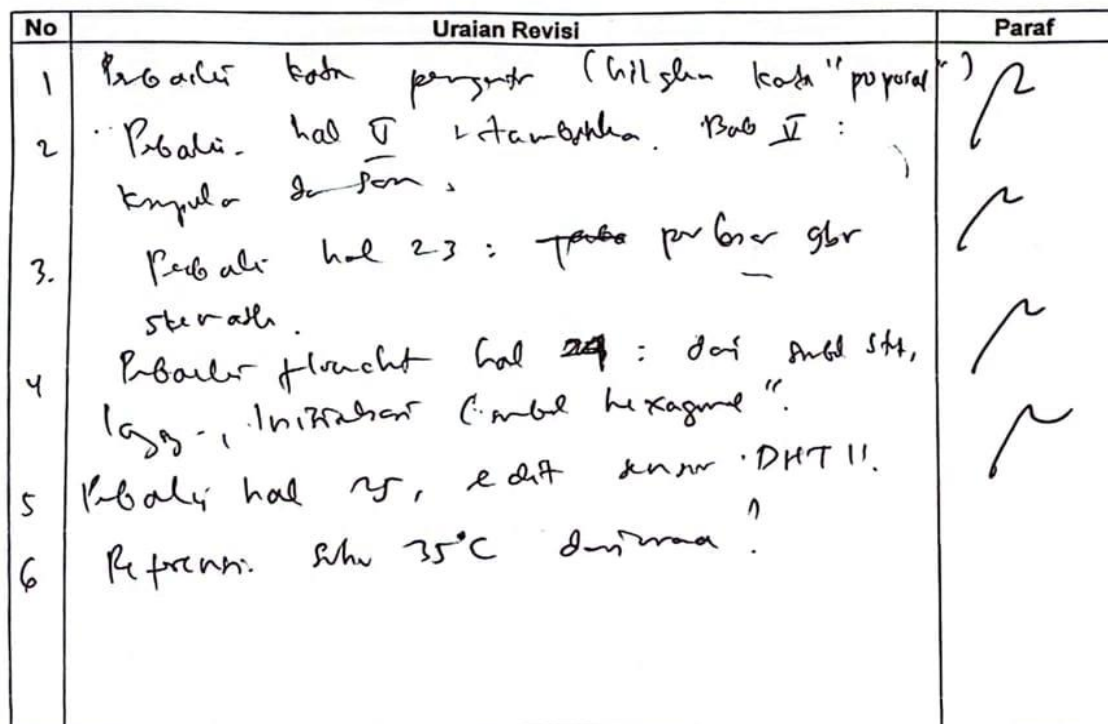 No Uraian Revisi Paraf
1 Perbaiki kata pengantar (hilgkn kata "proposal")
2 Perbaiki hal V tambahka Bab V :
3. Perbaiki hal 23 : perbesar gbr
skematik.
4 Perbaiki flowcht hal 24 : dari simbol
Inisialisasi (simbol hexagonal".
5 Perbaiki hal 25, edit sensor DHT 11.
6 Referensi suhu 35°C darimana?